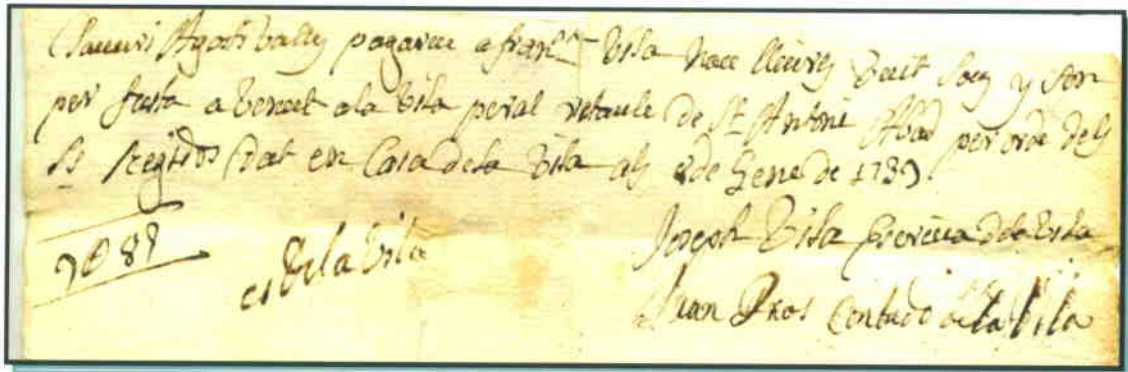 Clauari Agosti Batlly pagareu a Fran.ch Vila nou lliures vuit sous y son
per fusta a benut a la Vila per al retaule de St. Antoni Abad per orde dels
Ss Regidos Dat en Casa de la Vila als 8 de Gene de 1739
9 @ 8 s
es de la Vila
Joseph Vila de la Vila
Juan Pros Contado de la Vila